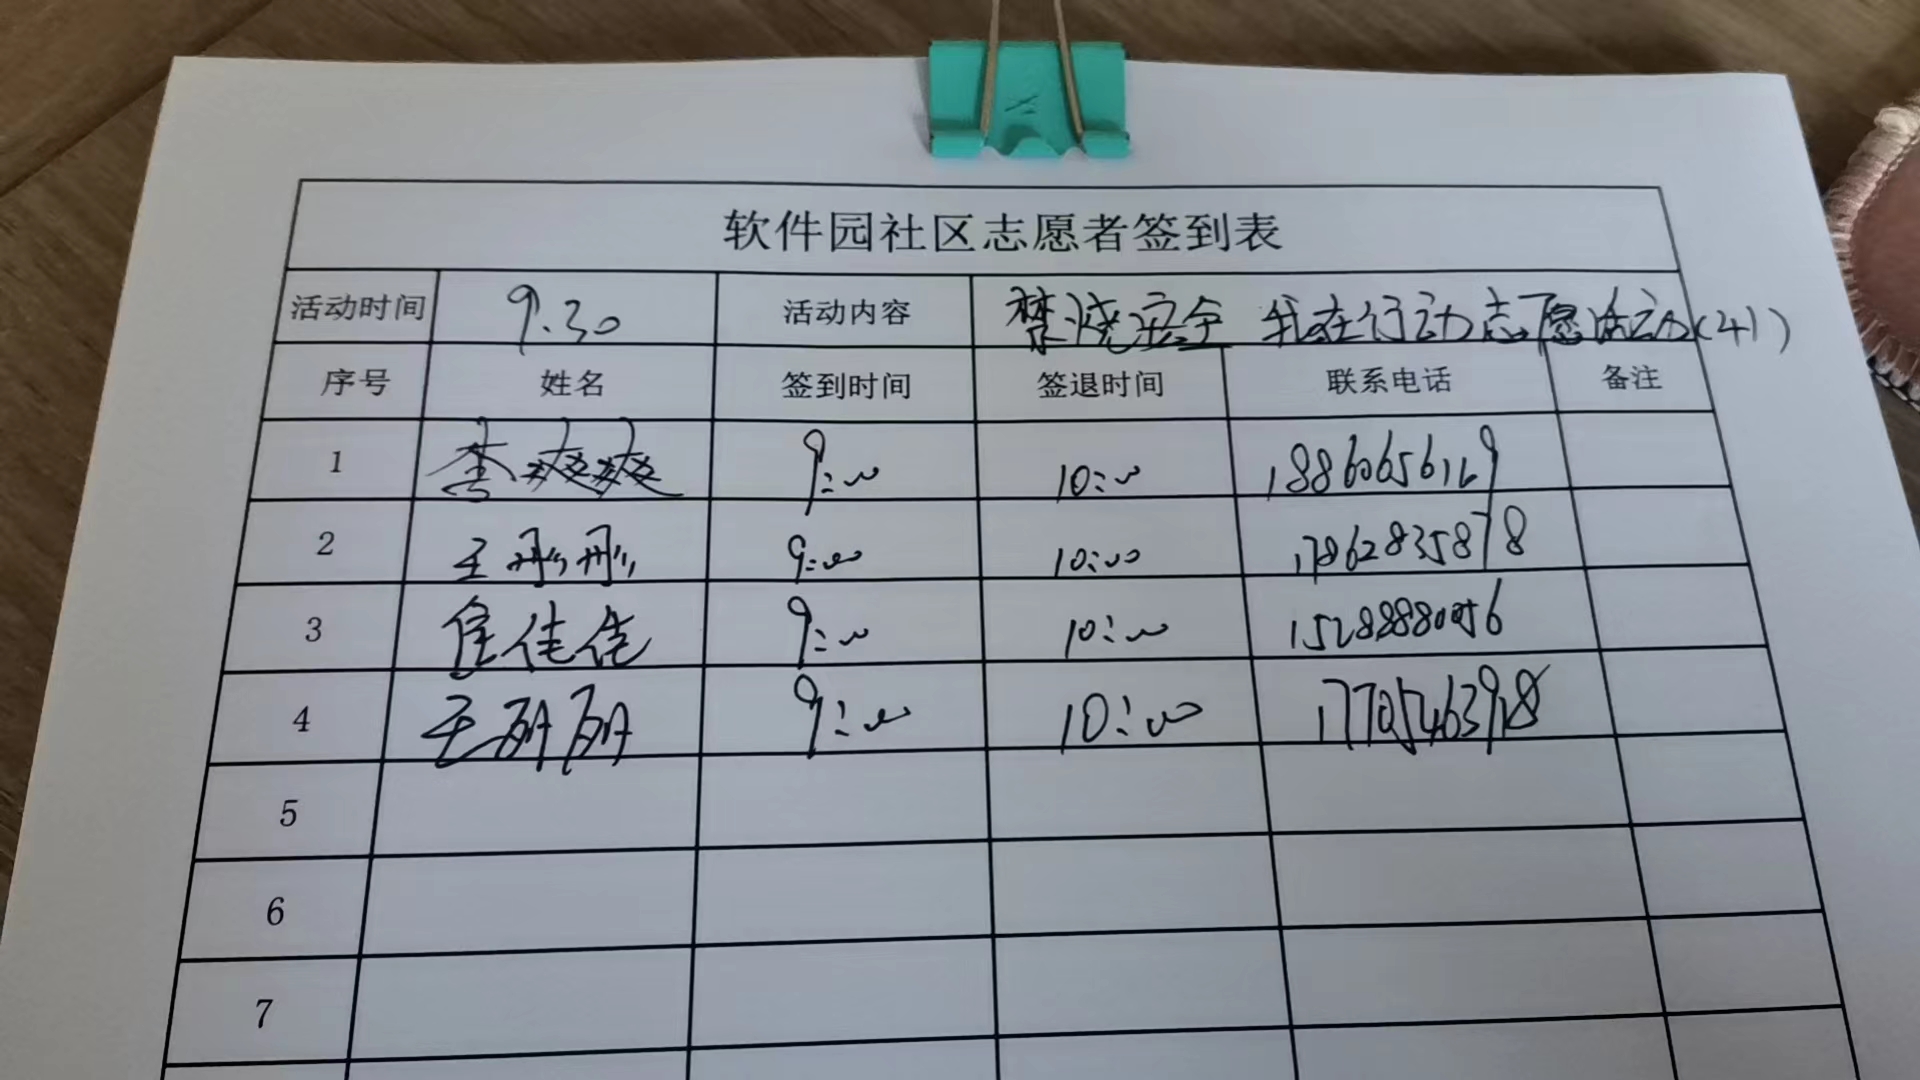 软件园社区志愿者签到表
活动时间 9.30 活动内容 禁烧安全 我在行动志愿活动(241)
序号 姓名 签到时间 签退时间 联系电话 备注
1 李爽爽 9:00 10:00 18860656169
2 王彤彤 9:00 10:00 17862835878
3 佳佳 9:00 10:00 15288880056
4 王丽丽 9:00 10:00
5
6
7